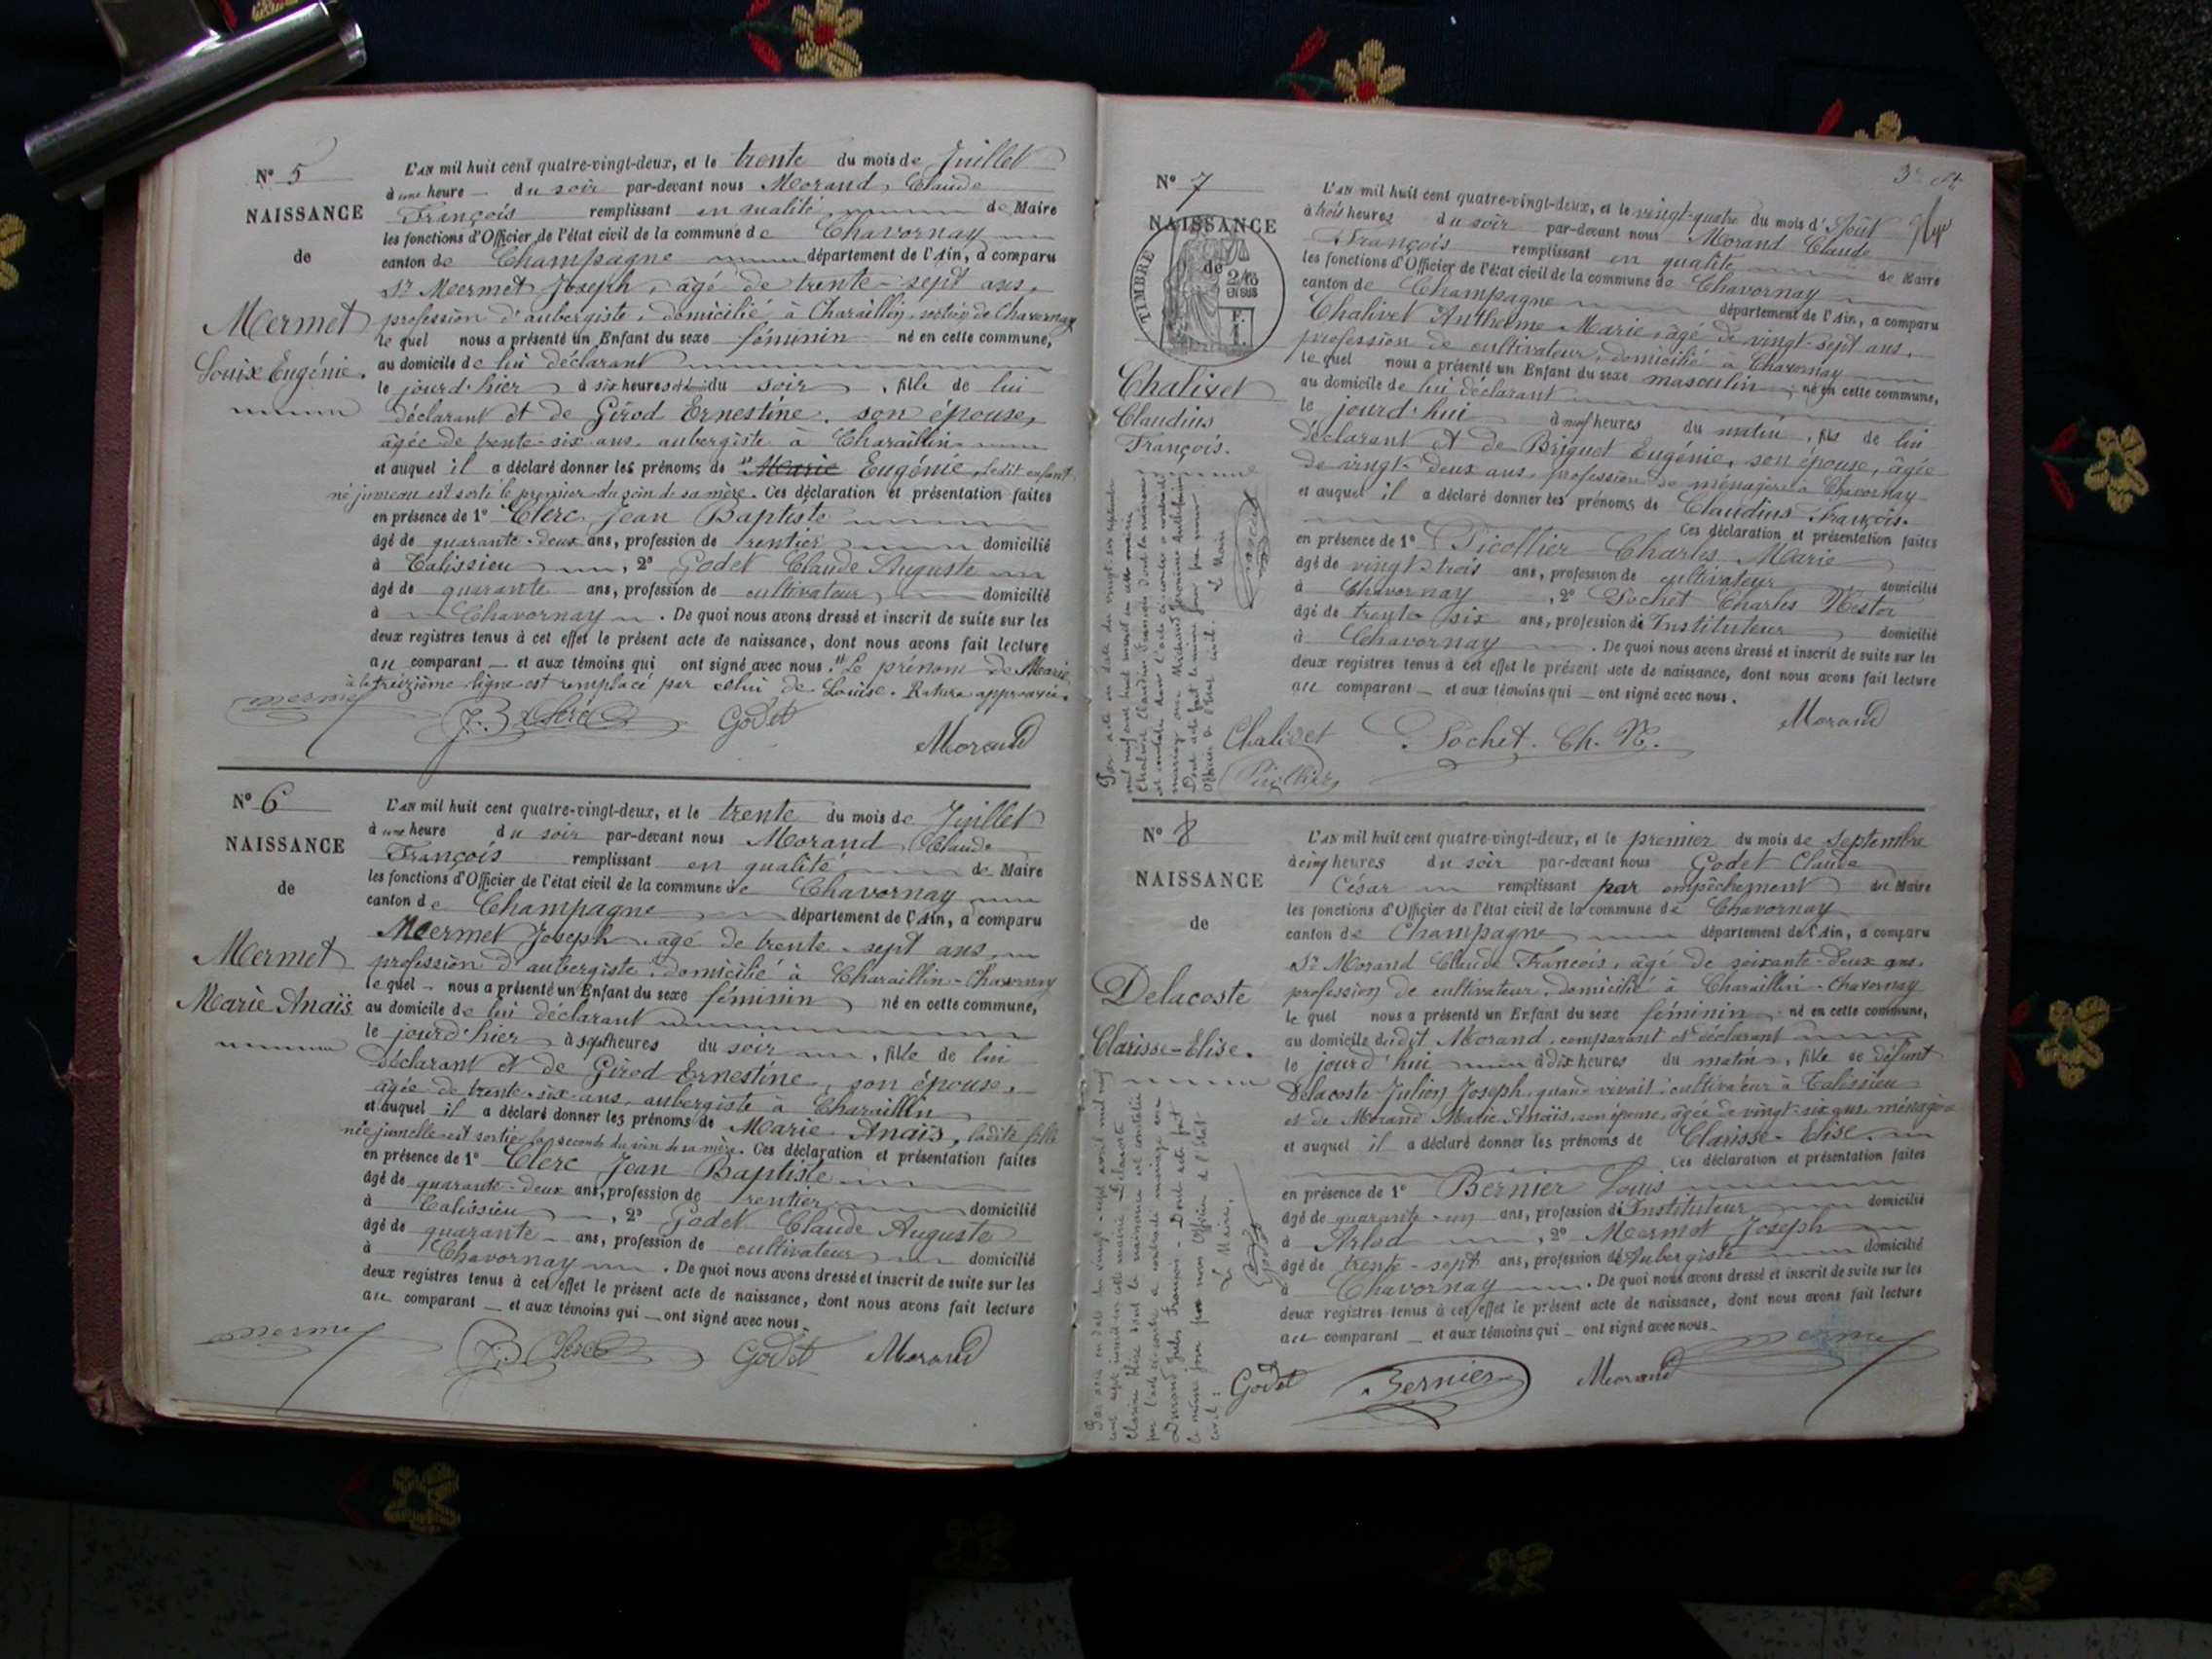 N° 5
NAISSANCE
de
Mermet
Louise Eugénie.
L'AN mil huit cent quatre-vingt-deux, et le trente du mois de Juillet
à une heure du soir par-devant nous Morand, Claude
François remplissant en qualité de Maire
les fonctions d'Officier de l'état civil de la commune de Chavornay
canton de Champagne département de l'Ain, a comparu
Sr Mermet Joseph, âgé de trente-sept ans,
profession d'aubergiste, domicilié à Charaillin, section de Chavornay
le quel nous a présenté un Enfant du sexe féminin né en cette commune,
au domicile de lui déclarant
le jourd'hier à six heures du soir, fille de lui
déclarant et de Girod Ernestine, son épouse,
âgée de trente-six ans, aubergiste à Charaillin
et auquel il a déclaré donner les prénoms de Marie Eugénie, ledit enfant
né jumeau est sorti le premier du sein de sa mère. Ces déclaration et présentation faites
en présence de 1° Clerc Jean Baptiste
âgé de quarante-deux ans, profession de rentier domicilié
à Talissieu, 2° Godet Claude Auguste
âgé de quarante ans, profession de cultivateur domicilié
à Chavornay. De quoi nous avons dressé et inscrit de suite sur les
deux registres tenus à cet effet le présent acte de naissance, dont nous avons fait lecture
au comparant et aux témoins qui ont signé avec nous. Le prénom de Marie
à la treizième ligne est remplacé par celui de Louise. Rature approuvée.
Mermet J. B. Clerc Godet Morand
N° 6
NAISSANCE
de
Mermet
Marie Anaïs
L'AN mil huit cent quatre-vingt-deux, et le trente du mois de Juillet
à une heure du soir par-devant nous Morand Claude
François remplissant en qualité de Maire
les fonctions d'Officier de l'état civil de la commune de Chavornay
canton de Champagne département de l'Ain, a comparu
Mermet Joseph, âgé de trente-sept ans,
profession d'aubergiste, domicilié à Charaillin-Chavornay
le quel nous a présenté un Enfant du sexe féminin né en cette commune,
au domicile de lui déclarant
le jourd'hier à sept heures du soir, fille de lui
déclarant et de Girod Ernestine, son épouse,
âgée de trente-six ans, aubergiste à Charaillin
et auquel il a déclaré donner les prénoms de Marie Anaïs, ladite fille
née jumelle est sortie la seconde du sein de sa mère. Ces déclaration et présentation faites
en présence de 1° Clerc Jean Baptiste
âgé de quarante-deux ans, profession de rentier domicilié
à Talissieu, 2° Godet Claude Auguste
âgé de quarante ans, profession de cultivateur domicilié
à Chavornay. De quoi nous avons dressé et inscrit de suite sur les
deux registres tenus à cet effet le présent acte de naissance, dont nous avons fait lecture
au comparant et aux témoins qui ont signé avec nous.
Mermet J. B. Clerc Godet Morand
N° 7
NAISSANCE
de
TIMBRE
2/10 EN SUS
Chalivet
Claudius
François.
L'AN mil huit cent quatre-vingt-deux, et le vingt-quatre du mois d'Août
à trois heures du soir par-devant nous Morand Claude
François remplissant en qualité de Maire
les fonctions d'Officier de l'état civil de la commune de Chavornay
canton de Champagne département de l'Ain, a comparu
Chalivet Anthelme Marie, âgé de vingt-sept ans,
profession de cultivateur, domicilié à Chavornay
le quel nous a présenté un Enfant du sexe masculin, né en cette commune,
au domicile de lui déclarant
le jourd'hui à neuf heures du matin, fils de lui
déclarant et de Briguet Eugénie, son épouse, âgée
de vingt-deux ans, profession de ménagère à Chavornay
et auquel il a déclaré donner les prénoms de Claudius François.
Ces déclaration et présentation faites
en présence de 1° Picollier Charles Marie
âgé de vingt-trois ans, profession de cultivateur domicilié
à Chavornay, 2° Pochet Charles Nestor
âgé de trente six ans, profession d'Instituteur domicilié
à Chavornay. De quoi nous avons dressé et inscrit de suite sur les
deux registres tenus à cet effet le présent acte de naissance, dont nous avons fait lecture
au comparant et aux témoins qui ont signé avec nous.
Chalivet Pochet. Ch. N. Morand
N° 8
NAISSANCE
de
Delacoste
Clarisse-Elise.
L'AN mil huit cent quatre-vingt-deux, et le premier du mois de Septembre
à cinq heures du soir par-devant nous Godet Claude
César remplissant par empêchement du Maire
les fonctions d'Officier de l'état civil de la commune de Chavornay
canton de Champagne département de l'Ain, a comparu
Sr Morand Claude François, âgé de soixante-deux ans,
profession de cultivateur, domicilié à Charaillin-Chavornay
le quel nous a présenté un Enfant du sexe féminin né en cette commune,
au domicile dudit Morand, comparant et déclarant
le jourd'hui à dix heures du matin, fille de défunt
Delacoste Julien Joseph, quand vivait cultivateur à Talissieu
et de Morand Marie Anaïs, son épouse, âgée de vingt-six ans, ménagère
et auquel il a déclaré donner les prénoms de Clarisse-Elise.
Ces déclaration et présentation faites
en présence de 1° Bernier Louis
âgé de quarante-un ans, profession d'Instituteur domicilié
à Arlod, 2° Mermet Joseph
âgé de trente-sept ans, profession d'Aubergiste domicilié
à Chavornay. De quoi nous avons dressé et inscrit de suite sur les
deux registres tenus à cet effet le présent acte de naissance, dont nous avons fait lecture
au comparant et aux témoins qui ont signé avec nous.
Godet Bernier Morand Mermet